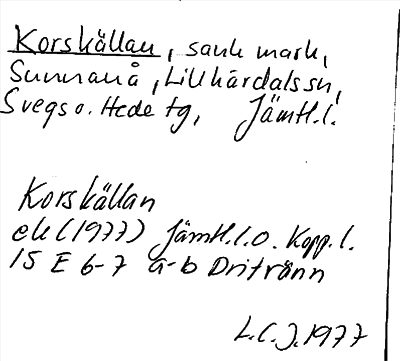 Korskällan, sank mark,
Sunnanå, Lillhärdals sn,
Svegs o. Hede tg, Jämtl.l.
Korskällan
ek (1977) Jämtl.l. o. Kopp.l.
15 E 6-7 a-b Dritränn
L.C.J. 1977